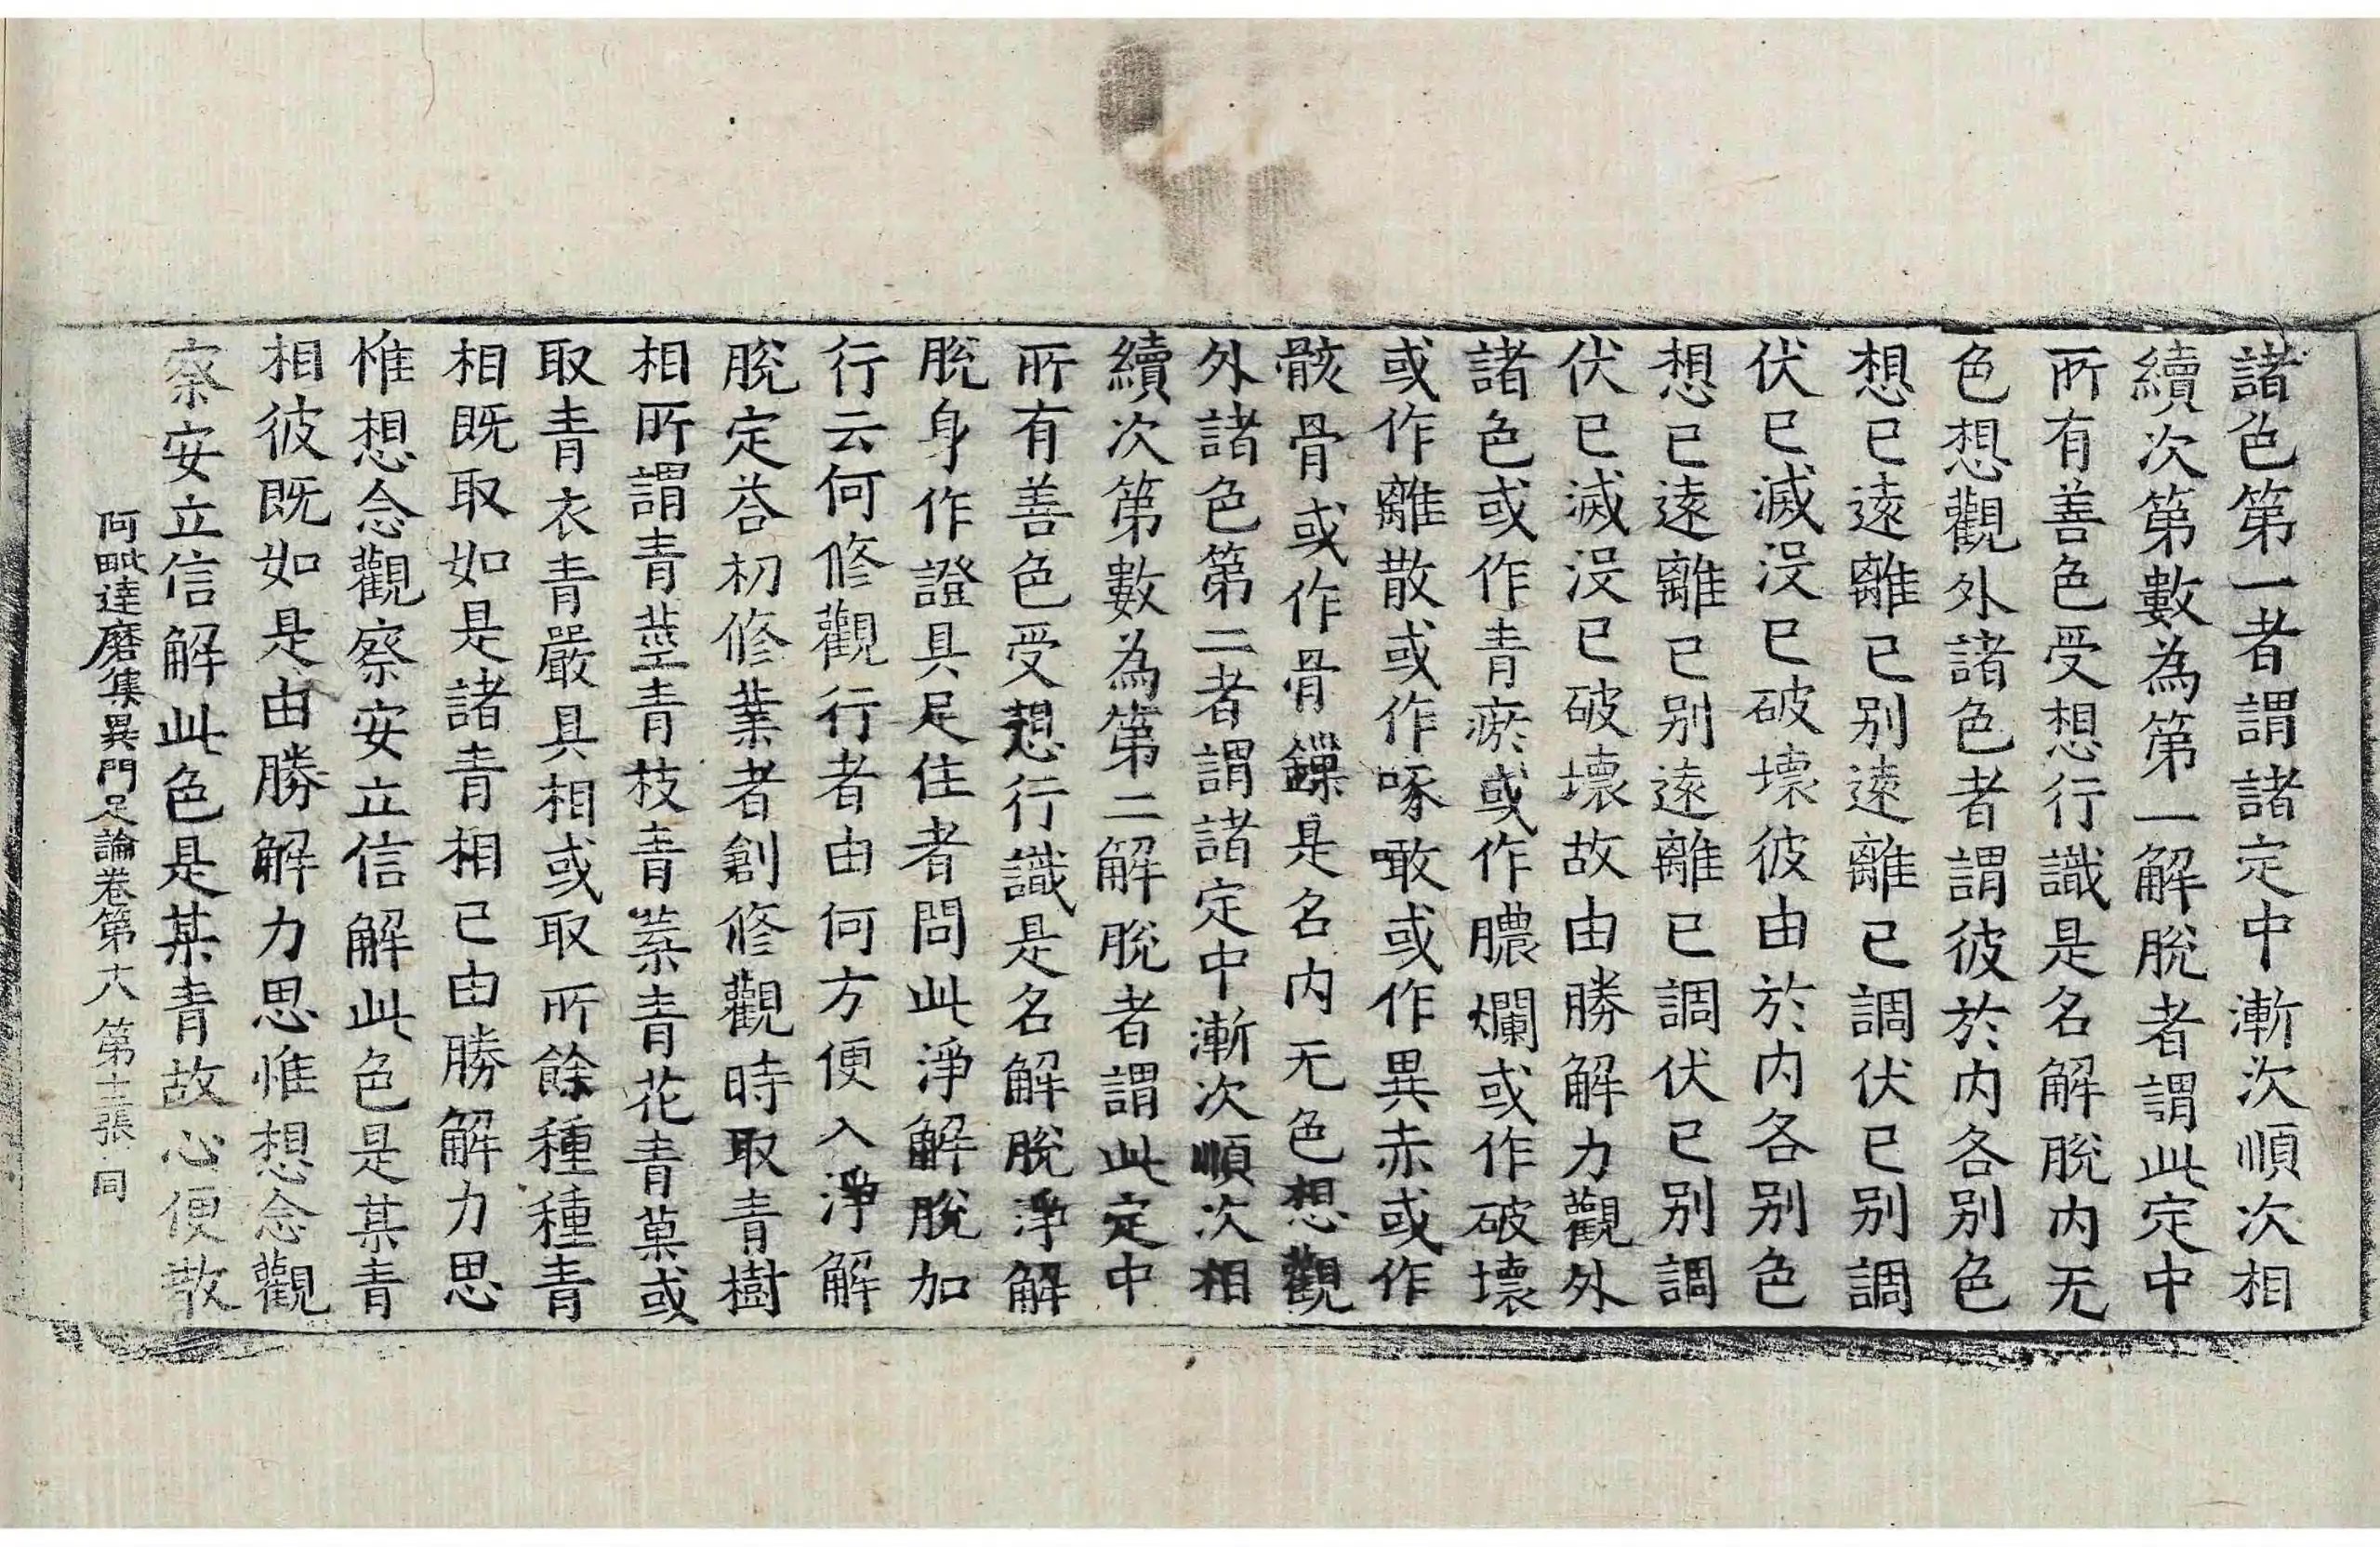 諸色第一者謂諸定中漸次順次相
續次第數為第一解脫者謂此定中
所有善色受想行識是名解脫內无
色想觀外諸色者謂彼於內各別色
想已遠離已別遠離已調伏已別調
伏已滅沒已破壞彼由於內各別色
想已遠離已別遠離已調伏已別調
伏已滅沒已破壞故由勝解力觀外
諸色或作青瘀或作膿爛或作破壞
或作離散或作啄噉或作異赤或作
骸骨或作骨鏁是名內无色想觀
外諸色第二者謂諸定中漸次順次相
續次第數為第二解脫者謂此定中
所有善色受想行識是名解脫淨解
脫身作證具足住者問此淨解脫加
行云何修觀行者由何方便入淨解
脫定荅初修業者創修觀時取青樹
相所謂青莖青枝青葉青花青菓或
取青衣青嚴具相或取所餘種種青
相既取如是諸青相已由勝解力思
惟想念觀察安立信解此色是某青
相彼既如是由勝解力思惟想念觀
察安立信解此色是某青故心便散
阿毗達磨集異門足論卷第十八 第十二張 同